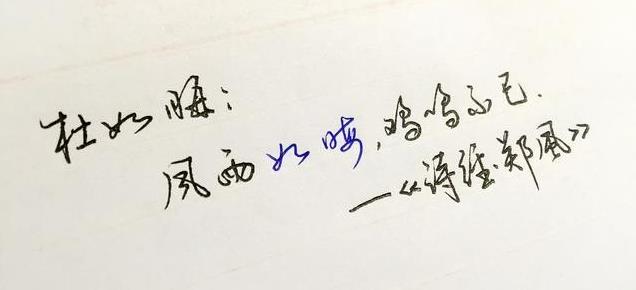 杜如晦：
風雨如晦，鸡鸣不已．
—《诗经·郑風》